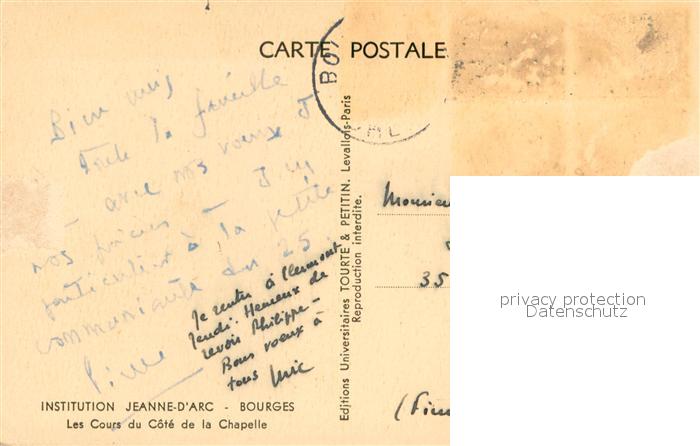 CARTE POSTALE
BO
Bien unis
toute la famille
avec nos voeux &
nos prières - J'en
particulier à la petite
communiante du 25.
Pierre
Je rentre à Clermont
Jeudi. Heureux de
revoir Philippe -
Bons voeux à
tous
Editions Universitaires TOURTE & PETITIN. Levallois-Paris
Reproduction interdite.
Monsieur
35
(Fin
privacy protection
Datenschutz
INSTITUTION JEANNE-D'ARC - BOURGES
Les Cours du Côté de la Chapelle